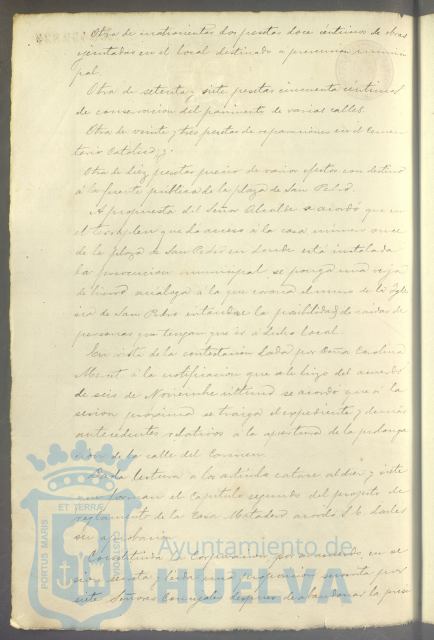 Otra de cuatrocientas dos pesetas doce céntimos de obras
ejecutadas en el local destinado a prevencion munici
pal.
Otra de setenta y siete pesetas cincuenta céntimos
de conservacion del pavimento de varias calles.
Otra de veinte y tres pesetas de reparaciones en el Cemen
terio Católico; y
Otra de diez pesetas precio de varios efectos con destino
á la fuente pública de la plaza de San Pedro.
A propuesta del Señor Alcalde se acordó que en
el que da acceso a la casa número once
de la plaza de San Pedro en donde está instalada
la prevencion municipal se ponga una reja
de hierro análoga á la que corona el muro de la Igle
sia de San Pedro evitandose la posibilidad de caidas de
personas que tengan que ir á dicho local.
En vista de la contestacion dada por Doña Carolina
á la notificacion que se le hizo del acuerdo
de seis de Noviembre último se acordó que á la
sesion próxima se traiga el expediente y demás
antecedentes relativos á la apertura de la prolonga
cion de la calle del Carmen.
Dada lectura a los artículos catorce al diez y siete
que forman el Capítulo segundo del proyecto de
reglamento de la Casa Matadero acordó S. E. darles
su aprobacion.
Constituida la Corporacion por acuerdo en se
sion secreta y leida una proposicion suscrita por
siete Señores Concejales despues de abandonar la presi
PORTUS MARIS
ET TERRÆ
CUSTODIA
Ayuntamiento de
HUELVA